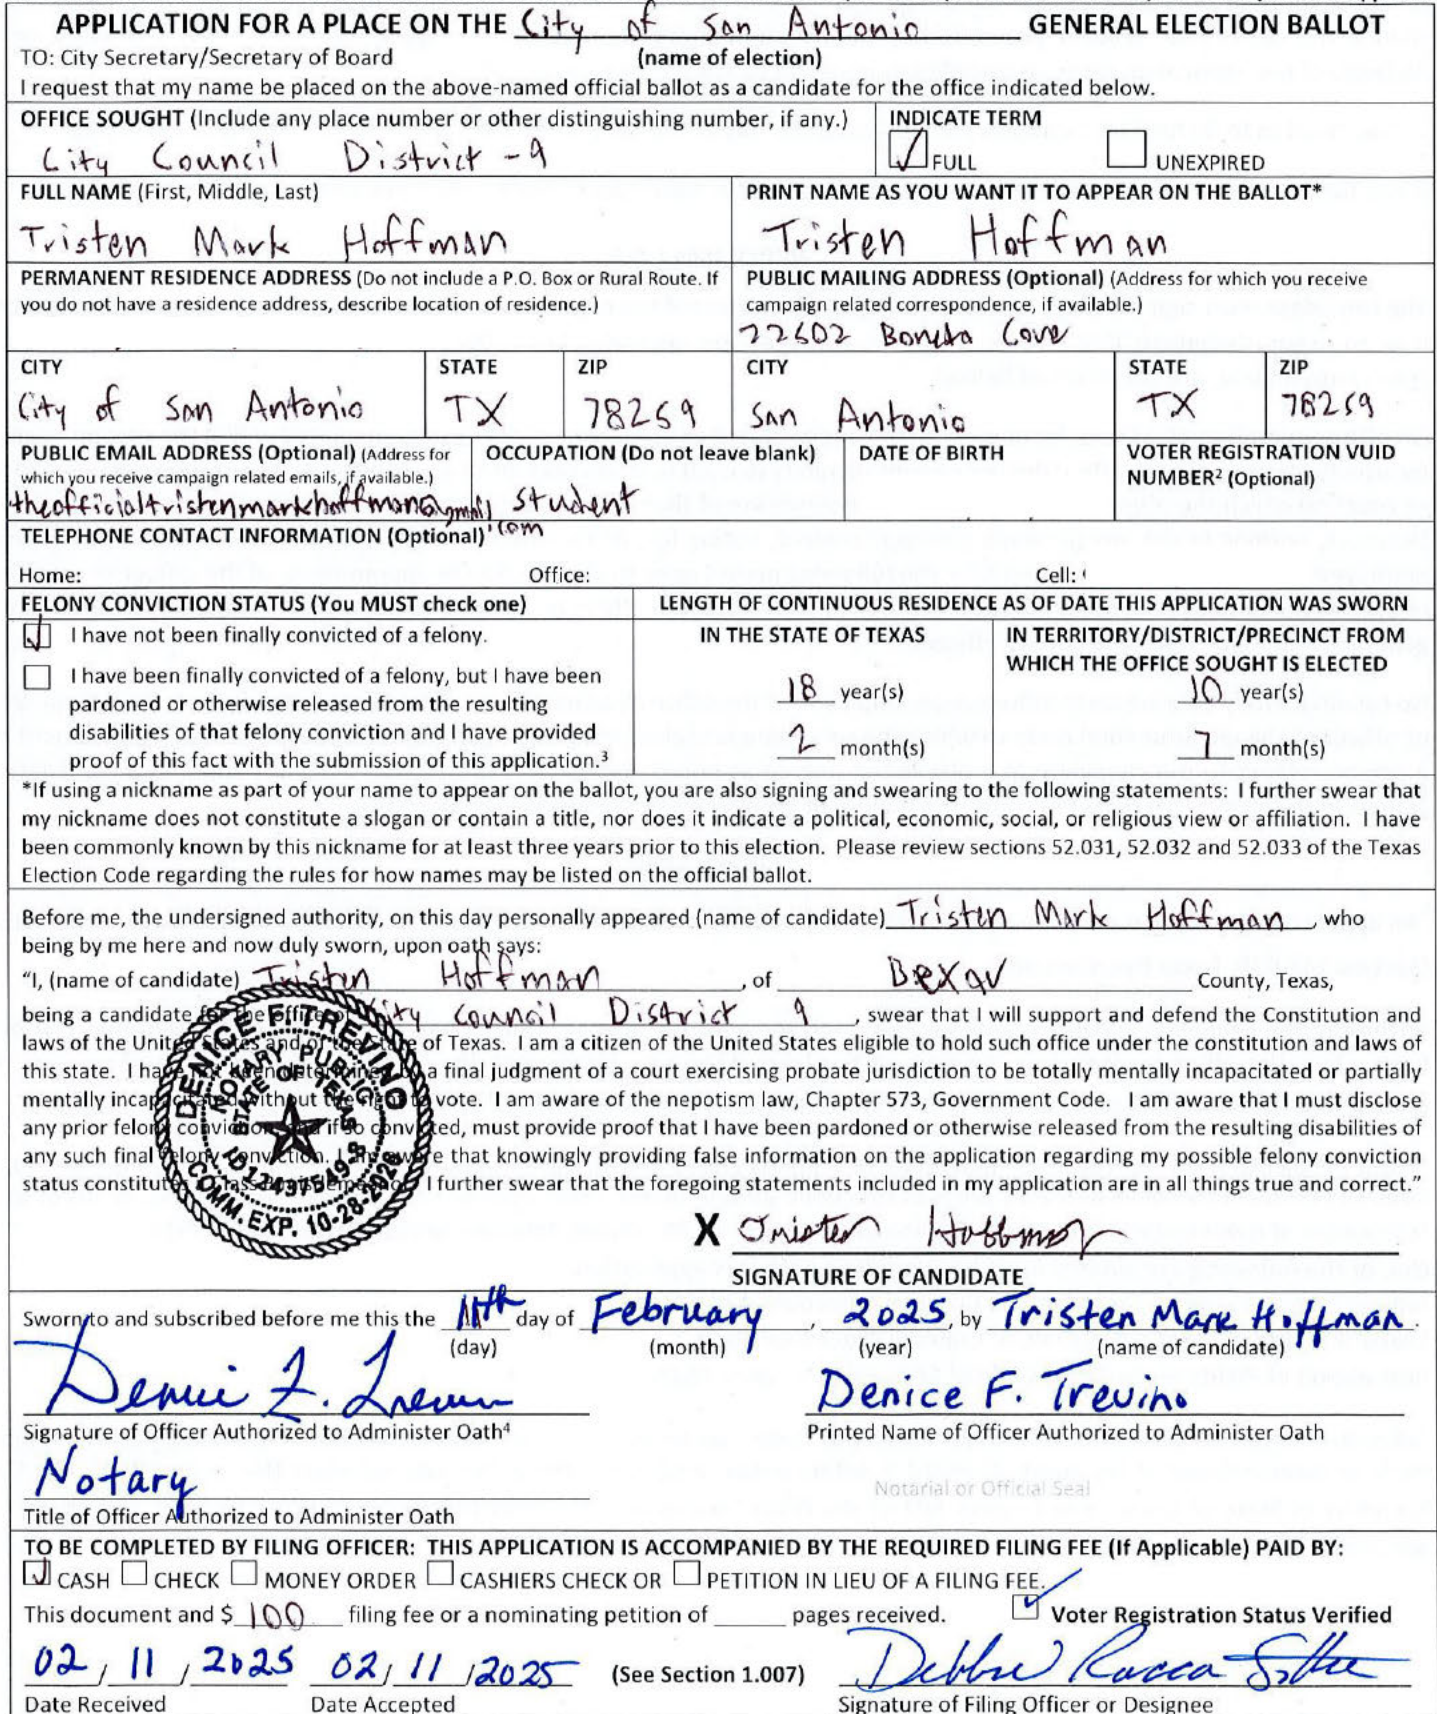 APPLICATION FOR A PLACE ON THE City of San Antonio GENERAL ELECTION BALLOT
TO: City Secretary/Secretary of Board (name of election)
I request that my name be placed on the above-named official ballot as a candidate for the office indicated below.
OFFICE SOUGHT (Include any place number or other distinguishing number, if any.) INDICATE TERM
City Council District - 9 FULL UNEXPIRED
FULL NAME (First, Middle, Last) PRINT NAME AS YOU WANT IT TO APPEAR ON THE BALLOT*
Tristen Mark Hoffman Tristen Hoffman
PERMANENT RESIDENCE ADDRESS (Do not include a P.O. Box or Rural Route. If you do not have a residence address, describe location of residence.)
PUBLIC MAILING ADDRESS (Optional) (Address for which you receive campaign related correspondence, if available.)
22602 Cove
CITY STATE ZIP CITY STATE ZIP
City of San Antonio TX 78259 San Antonio TX 78259
PUBLIC EMAIL ADDRESS (Optional) (Address for which you receive campaign related emails, if available.)
theofficialtristenmarkhoffman@gmail.com
OCCUPATION (Do not leave blank)
student
DATE OF BIRTH
VOTER REGISTRATION VUID NUMBER² (Optional)
TELEPHONE CONTACT INFORMATION (Optional)
Home: Office: Cell:
FELONY CONVICTION STATUS (You MUST check one) LENGTH OF CONTINUOUS RESIDENCE AS OF DATE THIS APPLICATION WAS SWORN
I have not been finally convicted of a felony.
I have been finally convicted of a felony, but I have been
pardoned or otherwise released from the resulting
disabilities of that felony conviction and I have provided
proof of this fact with the submission of this application.³
IN THE STATE OF TEXAS
18 year(s)
2 month(s)
IN TERRITORY/DISTRICT/PRECINCT FROM
WHICH THE OFFICE SOUGHT IS ELECTED
10 year(s)
7 month(s)
*If using a nickname as part of your name to appear on the ballot, you are also signing and swearing to the following statements: I further swear that
my nickname does not constitute a slogan or contain a title, nor does it indicate a political, economic, social, or religious view or affiliation. I have
been commonly known by this nickname for at least three years prior to this election. Please review sections 52.031, 52.032 and 52.033 of the Texas
Election Code regarding the rules for how names may be listed on the official ballot.
Before me, the undersigned authority, on this day personally appeared (name of candidate) Tristen Mark Hoffman, who
being by me here and now duly sworn, upon oath says:
"I, (name of candidate) Tristen Hoffman, of Bexar County, Texas,
being a candidate for the office of City Council District 9, swear that I will support and defend the Constitution and
laws of the United States and of the State of Texas. I am a citizen of the United States eligible to hold such office under the constitution and laws of
this state. I have not been determined by a final judgment of a court exercising probate jurisdiction to be totally mentally incapacitated or partially
mentally incapacitated without the right to vote. I am aware of the nepotism law, Chapter 573, Government Code. I am aware that I must disclose
any prior felony conviction, and if so convicted, must provide proof that I have been pardoned or otherwise released from the resulting disabilities of
any such final felony conviction. I am aware that knowingly providing false information on the application regarding my possible felony conviction
status constitutes a Class B misdemeanor. I further swear that the foregoing statements included in my application are in all things true and correct."
DENICE F. TREVINO
NOTARY PUBLIC
STATE OF TEXAS
COMM. EXP. 10-28-2026
X Tristen Hoffman
SIGNATURE OF CANDIDATE
Sworn to and subscribed before me this the 11th day of February, 2025, by Tristen Mark Hoffman.
(day) (month) (year) (name of candidate)
Denice F. Trevino Denice F. Trevino
Signature of Officer Authorized to Administer Oath⁴ Printed Name of Officer Authorized to Administer Oath
Notary
Notarial or Official Seal
Title of Officer Authorized to Administer Oath
TO BE COMPLETED BY FILING OFFICER: THIS APPLICATION IS ACCOMPANIED BY THE REQUIRED FILING FEE (If Applicable) PAID BY:
CASH CHECK MONEY ORDER CASHIERS CHECK OR PETITION IN LIEU OF A FILING FEE.
This document and $ 100 filing fee or a nominating petition of pages received. Voter Registration Status Verified
02 / 11 / 2025 02 / 11 / 2025 (See Section 1.007) Debbie Racca
Date Received Date Accepted Signature of Filing Officer or Designee